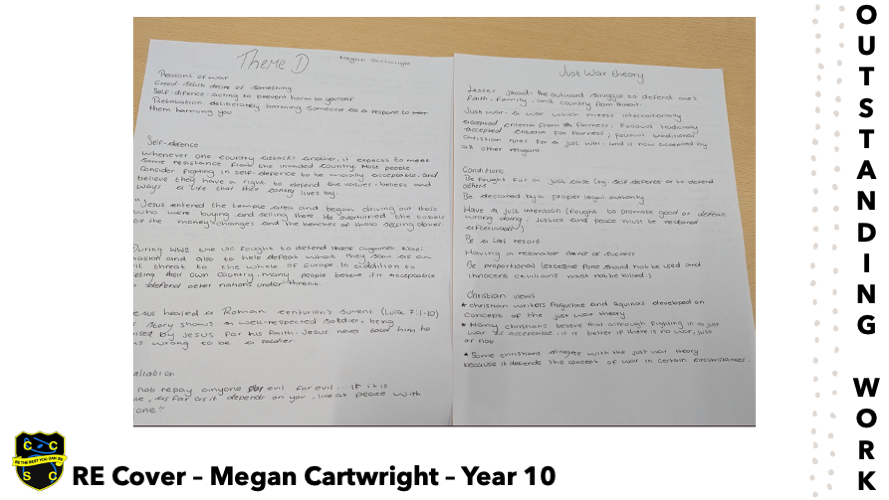 Theme D
Megan Cartwright
Reasons of war
Greed - selfish desire of something
Self-difence - acting to prevent harm to yourself
Retaliation - deliberately harming someone as a respone to
them harming you
Self-defence
Whenever one country attacks another, it expects to meet
some resistance from the invaded country. Most people
consider fighting in self-defence to be morally acceptable and
believe they have a right to defend the values, beliefs and
ways of life that their country lives by.
"Jesus entered the temple area and began driving out those
who were buying and selling there. He overturned the tables
of the money changes and the benches of those selling doves
During WW2 the UK fought to defend against Nazi
and also to help defeat what they saw as an
threat to the whole of Europe. In addition to
their own country, many people believe it is acceptable
defend other nations under threat.
healed a Roman centurion's (Luke 7:1-10)
story shows a well-respected soldier, being
by Jesus for his faith. Jesus never told him he
wrong to be a soldier.
not repay anyone evil for evil... if it is
, as far as it depends on you, live at peace with
one"
Just War theory
Lesser Jihad - the outward struggle to defend one's
faith, family, and country from threat.
Just war - a war which meets internationally
accepted criteria for fairness; follows traditional
Christian rules for a just war, and is now accepted by
all other religions
Conditions
Be fought for a just case (eg. self defence or to defend
others
Be declared by a proper legal authority
Have a just intention (fought to promote good or defeat
wrong doing. Justice and peace must be restored
afterwards)
Be a last resort
Having a reasonable chance of success
Be proportional (excessive force should not be used and
innocent civilians must not be killed.)
Christian views
* christian writers Augustine and Aquinas developed on
concept of the just war theory
* Many christians believe that although fighting in a just
war is acceptable, it is better if there is no war, just
or not
* Some christians disagree with the just war theory
because it defends the concept of war in certain circumstances.
OUTSTANDING WORK
C C
BE THE BEST YOU CAN BE
S C
RE Cover – Megan Cartwright – Year 10